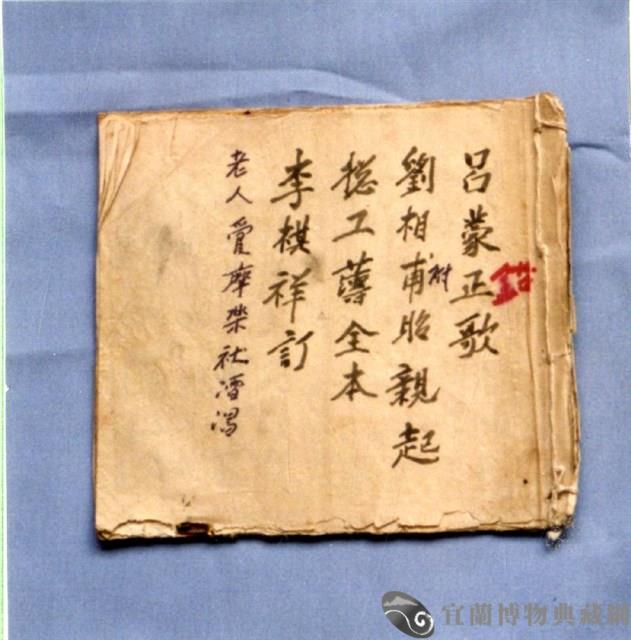 呂蒙正歌
劉相甫附胎親起
總工簿全本
李棋祥訂
老人愛摩樂社
宜蘭博物典藏網